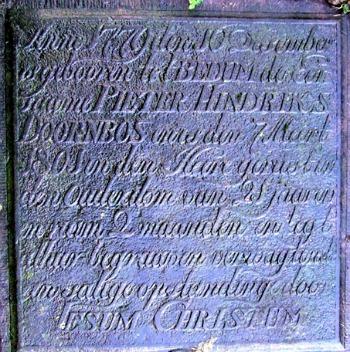 Anno 1779 den 16 December
is gebooren te BEDUM de Eer
saame PIETER HINDRIKS
DOORNBOS en is den 7 Maart
in den Heere gerust in
den Ouderdom van jaar en
ruim 2 maanden en legt
alhier begraaven verwagtende
zalige opstanding door
IESUM CHRISTUM